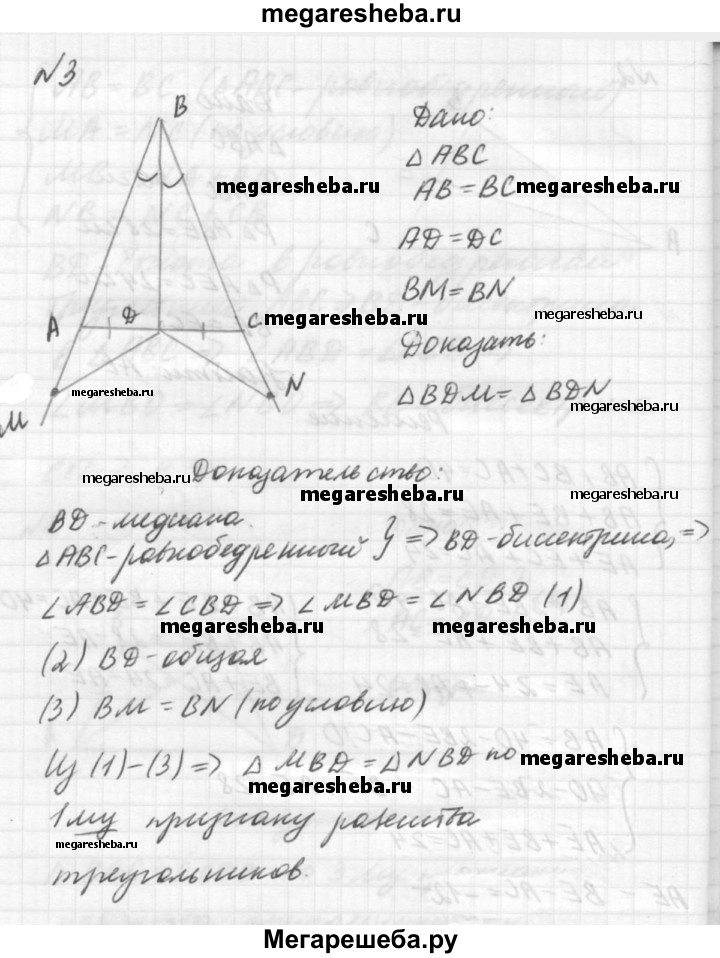 megaresheba.ru
N3
B
Дано:
△ ABC
megaresheba.ru
AB = BC megaresheba.ru
AD = DC
BM = BN
A
D
C megaresheba.ru
megaresheba.ru
Доказать:
megaresheba.ru
N
△ BDM = △ BDN
megaresheba.ru
M
megaresheba.ru
Доказательство:
megaresheba.ru
megaresheba.ru
BD - медиана
△ ABC - равнобедренный } => BD - биссектриса, =>
∠ ABD = ∠ CBD => ∠ MBD = ∠ NBD (1)
megaresheba.ru
megaresheba.ru
(2) BD - общая
(3) BM = BN (по условию)
Из (1) - (3) => △ MBD = △ NBD по
megaresheba.ru
1му признаку равенства
megaresheba.ru
треугольников.
Мегарешеба.ру